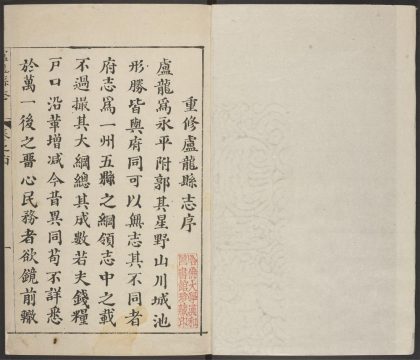 重修盧龍縣志序
盧龍爲永平附郭其星野山川城池
形勝皆與府同可以無志其不同者
府志爲一州五縣之綱領志中之載
不過撮其大綱總其成數若夫錢糧
戶口沿革增減今昔異同苟不詳悉
於萬一後之留心民務者欲鏡前轍
哈佛大學漢和
圖書館珍藏印
盧龍縣志
卷之首
一